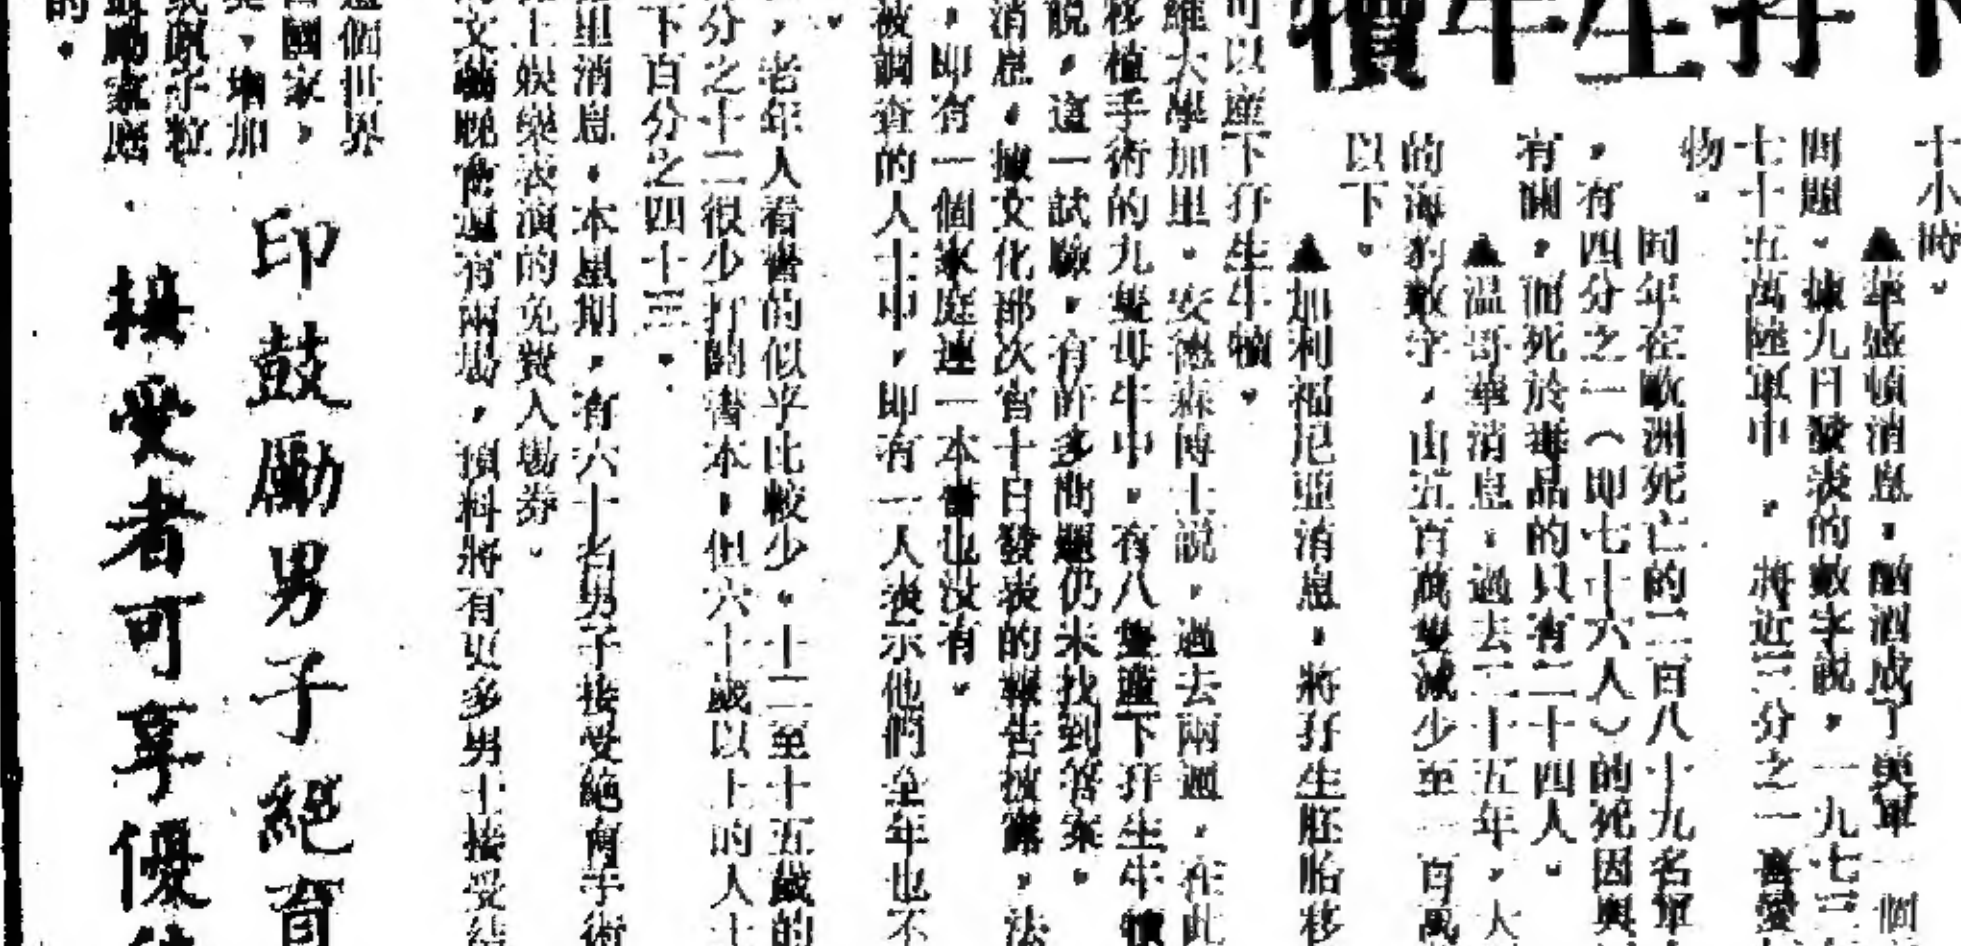 孖生牛犢
十小時。
▲華盛頓消息,酗酒成了美軍一個
問題。據九日發表的數字說,一九七三
七十五萬陸軍中,將近三分之一喜愛
物。
同年在歐洲死亡的二百八十九名軍
,有四分之一(即七十六人)的死因與
有關,而死於毒品的只有二十四人。
▲温哥華消息,過去二十五年,大
的海豹數字,由五百萬隻減少至一百萬
以下。
▲加利福尼亞消息,將孖生胚胎移
可以產下孖生牛犢。
維大學加里。安德森博士說,過去兩週,在此
移植手術的九隻母牛中,有八隻產下孖生牛犢
說,這一試驗,有許多問題仍未找到答案。
消息,據文化部次官十日發表的報告披露,法
,即有一個家庭連一本書也没有。
被調查的人士中,即有一人表示他們全年也不
。
,老年人看書的似乎比較少。十二至十五歲的
分之十二很少打開書本,但六十歲以上的人士
下百分之四十三。
里消息,本星期,有六十名男子接受絕育手術
上娛樂表演的免費入場券。
文藝晚會還有兩場,預料將有更多男士接受結
印鼓勵男子絕育
接受者可享優
這個世界
國家,
增加
或顆子粒
最勵家庭
的。